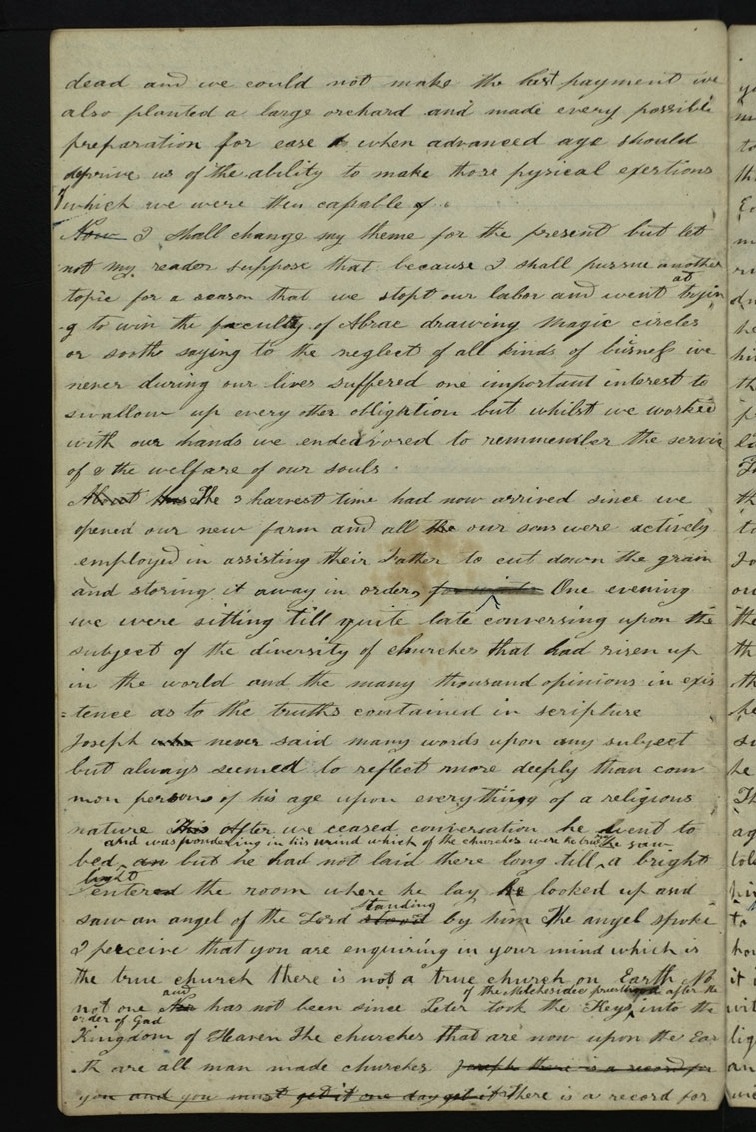 dead and we could not make the last payment we
also planted a large orchard and made every possible
preparation for ease when advanced age should
deprive us of the ability to make those pysical exertions
which we were then capable of
Now I shall change my theme for the present but let
not my reader suppose that because I shall pursue another
topic for a season that we stopt our labor and went at tryin
-g to win the faculty of Abrac drawing Magic circles
or sooth saying to the neglect of all kinds of buisness we
never during our lives suffered one important interest to
swallow up every other obligation but whilst we worked
with our hands we endeavored to remmember the service
of & the welfare of our souls.
About this The 3 harvest time had now arrived since we
opened our new farm and all the our sons were actively
employed in assisting their Father to cut down the grain
and storing it away in order, for winter One evening
we were sitting till quite late conversing upon the
subject of the diversity of churches that had risen up
in the world and the many thousand opinions in exis
=tence as to the truths contained in scripture
Joseph who never said many words upon any subject
but always seemed to reflect more deeply than com
mon persons of his age upon everything of a religious
nature This After we ceased conversation he went to
and was pondering in his mind which of the churches were the true one
bed an but he had not laid there long till he saw a bright
light
entered the room where he lay he looked up and
saw an angel of the Lord stood standing by him The angel spoke
I perceive that you are enquiring in your mind which is
the true church there is not a true church on Earth No
not one Nor and has not been since Peter took the Keys of the Melchesidec priesthood after the
order of God into the
Kingdom of Heaven The churches that are now upon the Ear
-th are all man made churches Joseph there is a record for
you and you must get it one day get it There is a record for